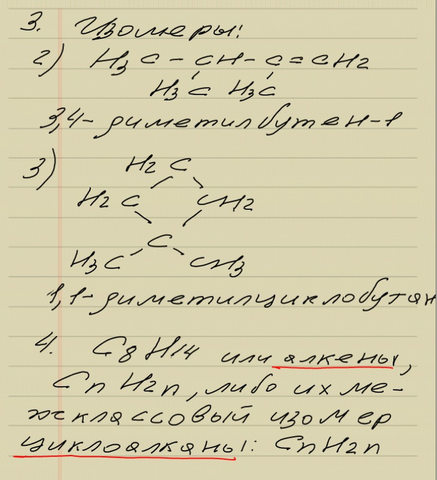 3. Изомеры:
2) H3C - CH - C = CH2
H3C H3C
3,4-диметилбутен-1
3)
H2C
H2C CH2
C
H3C CH3
1,1-диметилциклобутан
4. C8H14 или алкены,
CnH2n, либо их ме-
жклассовый изомер
циклоалканы: CnH2n